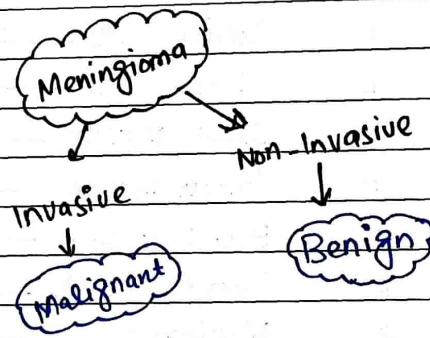 Meningioma
Non-Invasive
Invasive
Benign
Malignant